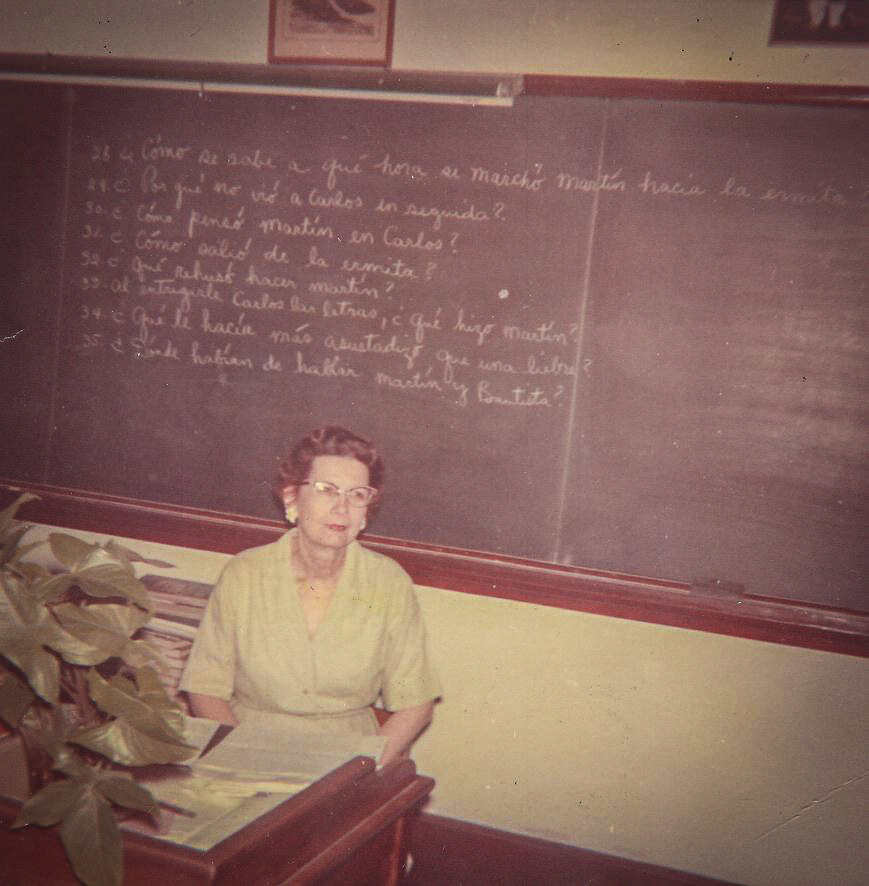 28. ¿Cómo se sabe a qué hora se marchó Martín hacia la ermita?
29. ¿Por qué no vió a Carlos en seguida?
30. ¿Cómo pensó Martín en Carlos?
31. ¿Cómo salió de la ermita?
32. ¿Qué rehusó hacer Martín?
33. Al entregirle Carlos las letras, ¿qué hizo Martín?
34. ¿Qué le hacía más asustadizo que una liebre?
35. ¿Dónde habían de hablar Martín y Bautista?